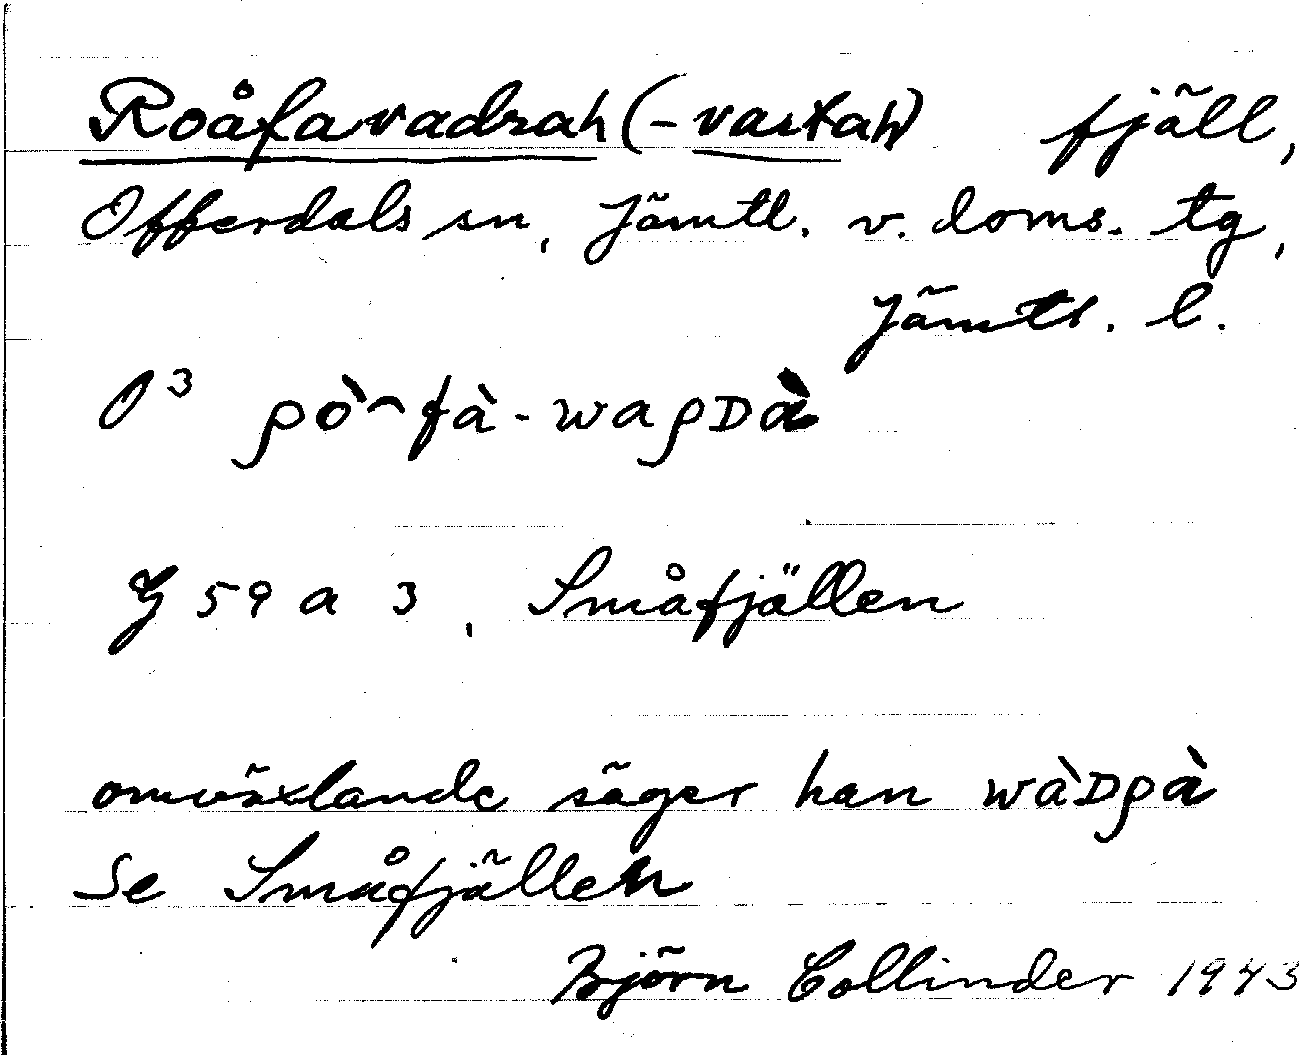 Roåfavadrah (-vartah) fjäll,
Offerdals sn, Jämtl. v. doms. tg,
Jämtl. l.
O³ ρò⁀fà-waρDà
G 59 a 3, Småfjällen
omväxlande säger han wàDρà
Se Småfjällen
Björn Collinder 1943